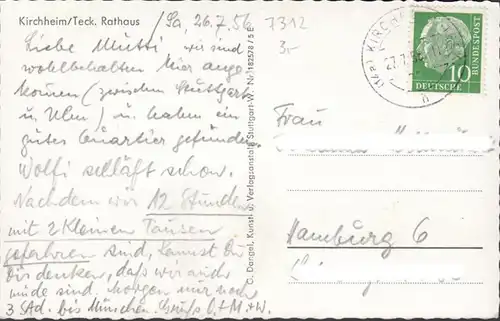 Kirchheim/Teck. Rathaus
Sa, 26.7.56
7312
3.-
Liebe Mutti wir sind
wohlbehalten hier ange
kommen (zwischen Stuttgart
u. Ulm) u. haben ein
gutes Quartier gefunden.
Wolfi schläft schon.
Nachdem wir 12 Stunden
mit 2 kleinen Pausen
gefahren sind, kannst Du
Dir denken, daß wir auch
müde sind. Morgen nur noch
3 Std. bis München. Grüße
C. Dangel, Kunst- u. Verlagsanstalt, Stuttgart-W. Nr. 182578 / 5 E
KIRCH
27.7.56
10
DEUTSCHE
BUNDESPOST
Frau
Hamburg 6